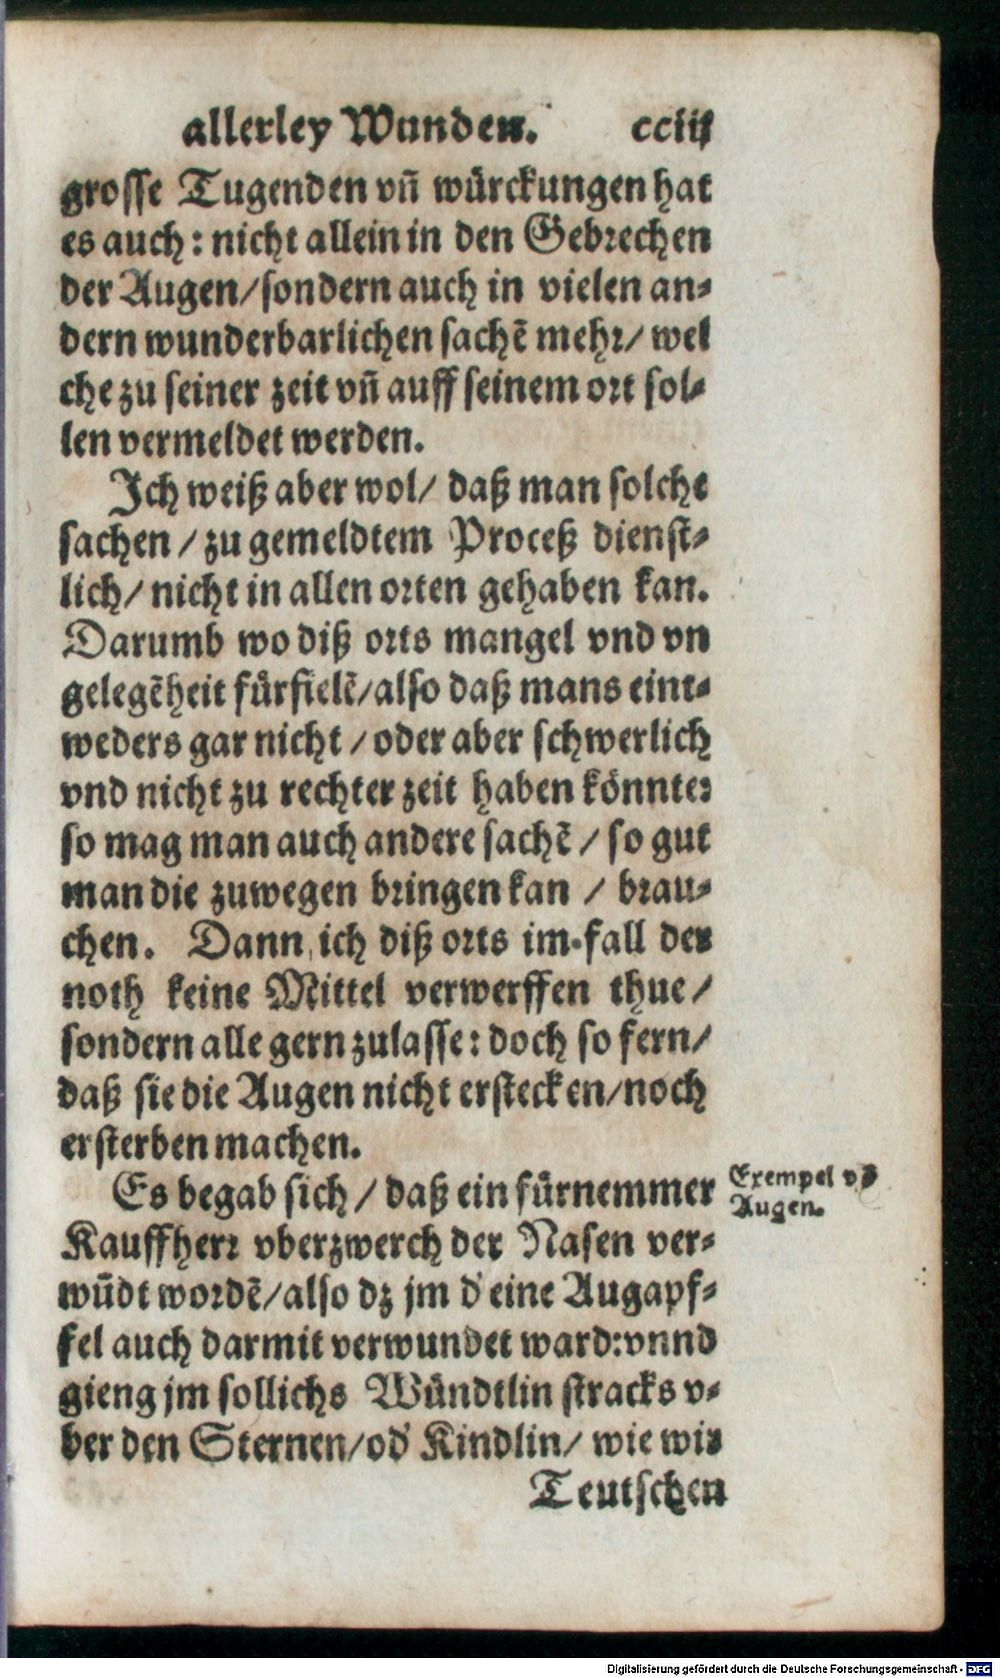 allerley Wunden. cciij
grosse Tugenden vñ würckungen hat
es auch: nicht allein in den Gebrechen
der Augen/sondern auch in vielen an-
dern wunderbarlichen sachẽ mehr/ wel
che zu seiner zeit vñ auff seinem ort sol-
len vermeldet werden.
Ich weiß aber wol/ daß man solche
sachen / zu gemeldtem Proceß dienst-
lich/ nicht in allen orten gehaben kan.
Darumb wo diß orts mangel vnd vn
gelegẽheit fürfielẽ/also daß mans eint-
weders gar nicht / oder aber schwerlich
vnd nicht zu rechter zeit haben könnte:
so mag man auch andere sachẽ / so gut
man die zuwegen bringen kan / brau-
chen. Dann ich diß orts im fall der
noth keine Mittel verwerffen thue/
sondern alle gern zulasse: doch so fern/
daß sie die Augen nicht erstecken/noch
ersterben machen.
Es begab sich / daß ein fürnemmer
Exempel võ
Augen.
Kauffherr vberzwerch der Nasen ver-
wũdt wordẽ/also dz jm d' eine Augapf-
fel auch darmit verwundet ward:vnnd
gieng jm sollichs Wündtlin stracks v-
ber den Sternen/od' Kindlin/ wie wir
Teutschen
Digitalisierung gefördert durch die Deutsche Forschungsgemeinschaft - DFG